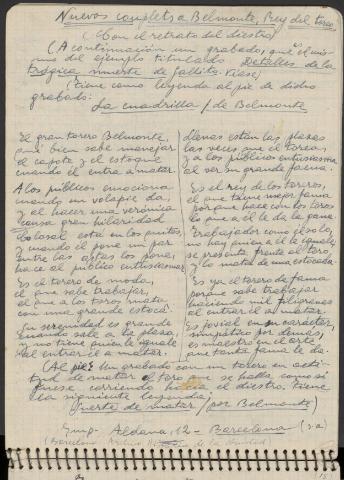 Nuevos couplets a Belmonte, Rey del toreo
(Con el retrato del diestro)
(A continuación un grabado, que es el mis-
mo del ejemplo titulado Detalles de la
trágica muerte de Gallito. Véase)
(Tiene como leyenda al pie de dicho
grabado:
La cuadrilla / de Belmonte
El gran torero Belmonte,
qué bien sabe manejar
el capote y el estoque
cuando él entra a matar.
A los públicos emociona
cuando un volapié da,
y al hacer una verónica
causa gran hilaridad
Colosal está en los quites,
y cuando él pone un par
entre las astas los pone,
hace al público entusiasmar
Es el torero de moda,
el que sabe trabajar,
el que a los toros mata
con una grande estocá.
Su serenidad es grande
cuando sale a la plaza,
y no tiene quien le iguale
al entrar él a matar.
Llenas están las plazas
las veces que él torea,
y a los públicos entusiasma
al ver su grande faena.
Es el rey de los toreros,
el que tiene mejor fama
porque hace con los toros
lo que a él le da la gana.
Trabajador como él solo,
no hay quien a él le iguale,
se presenta frente al toro,
y lo mata de una estocada.
Es ya el torero de fama
porque sabe trabajar
haciendo mil filigranas
al entrar él a matar.
Es jovial en su carácter,
simpático por demás,
es maestro en el arte,
que tanta fama le da.
(Al pie: Un grabado con un torero en acti-
tud de matar el toro que se halla como si
fuese corriendo hacia el diestro, tiene
la siguiente leyenda:
Suerte de matar / por Belmonte)
Imp. Aldana, 12 - Barcelona (s.a)
(Barcelona Archivo de la Ciudad)